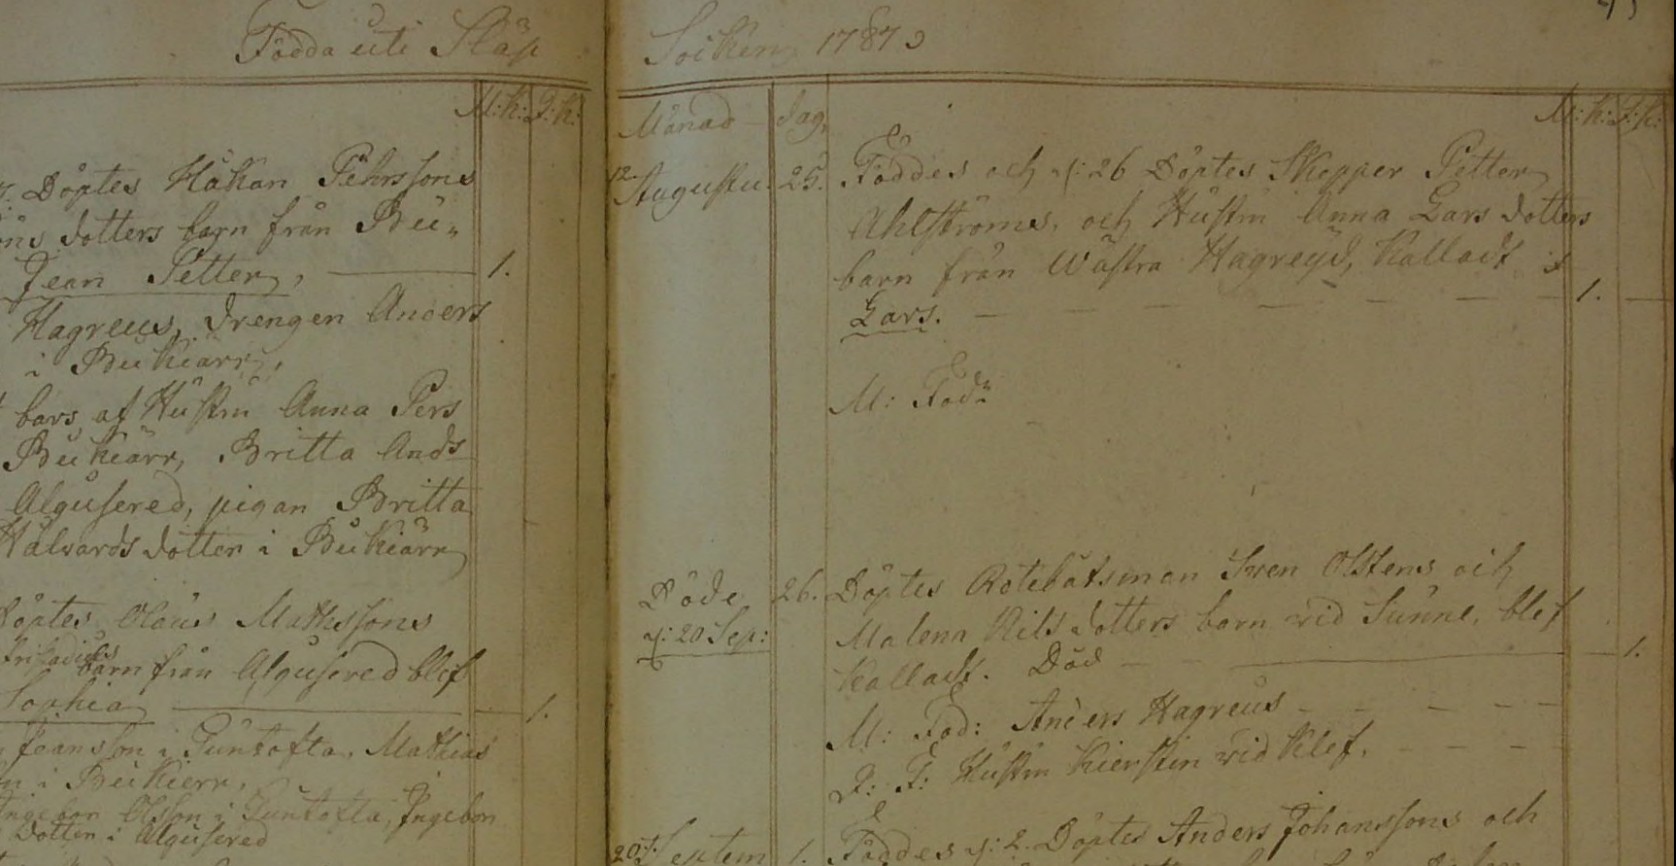 Födda uti Släp
M: K: Q: K:
Döptes Håkan Pehrssons
dotters barn från Bu„
Jean Petter, 1.
Hagreus, drengen Anders
i Bukiärr,
bars af Hustru Anna Pers
Bukiärr, Britta Ands
Algusered, pigan Britta
Halvards dotter i Bukiärr
Döptes Olaus Mathssons
barn från Algusered blef
Sophia 1.
Joansson i Guntofta, Mathias
i Bukierr,
Ingebor Olsson i Guntofta, Ingebor
Dotter i Algusered
Soiken 1787
Månad Dag M: K: Q: K:
12. Augustu. 25. Föddes och d: 26 Döptes Skepper Petter
Ahlströms, och Hustru Anna Lars dotters
barn från Wästra Hagreyd, Kalladt
Lars. 1.
M: Fadr
Döde 26. Döptes Rotebåtsman Swen Olstens och
d: 20 Sep: Malena Nils dotters barn wid Sunne, blef
Kalladt. Död 1.
M: Fad: Anders Hagreus
Q: F: Hustru Kierstin wid Klef.
20 Septem 1. Föddes d: 2. Döptes Anders Johanssons och